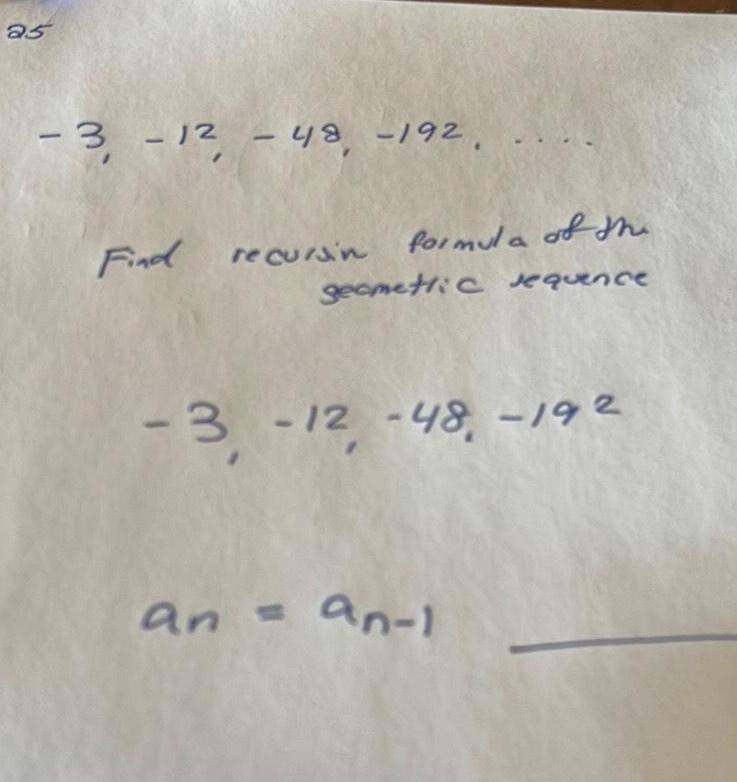 25
-3, -12, -48, -192. ....
Find recursin formula of the
geometric sequence
-3, -12, -48, -192
an = an-1 ____